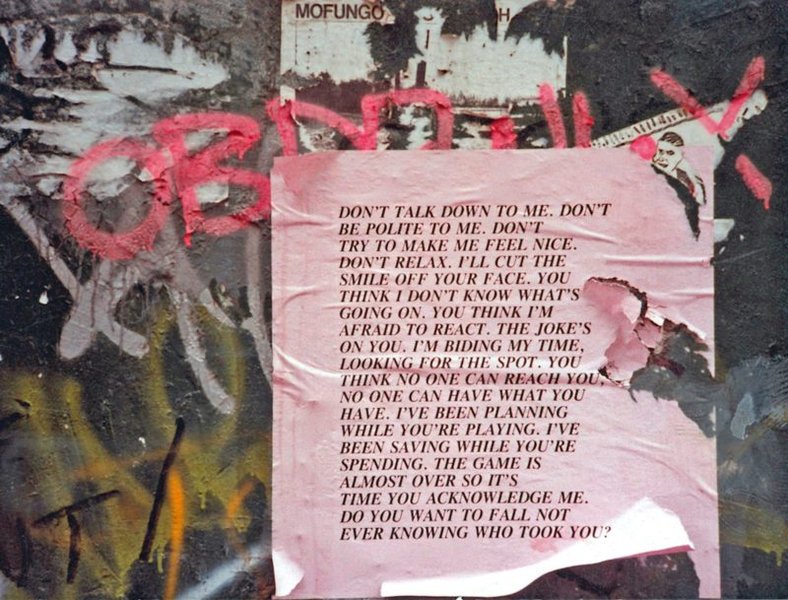 MOFUNGO
H
DON'T TALK DOWN TO ME. DON'T
BE POLITE TO ME. DON'T
TRY TO MAKE ME FEEL NICE.
DON'T RELAX. I'LL CUT THE
SMILE OFF YOUR FACE. YOU
THINK I DON'T KNOW WHAT'S
GOING ON. YOU THINK I'M
AFRAID TO REACT. THE JOKE'S
ON YOU. I'M BIDING MY TIME,
LOOKING FOR THE SPOT. YOU
THINK NO ONE CAN REACH YOU,
NO ONE CAN HAVE WHAT YOU
HAVE. I'VE BEEN PLANNING
WHILE YOU'RE PLAYING. I'VE
BEEN SAVING WHILE YOU'RE
SPENDING. THE GAME IS
ALMOST OVER SO IT'S
TIME YOU ACKNOWLEDGE ME.
DO YOU WANT TO FALL NOT
EVER KNOWING WHO TOOK YOU?
UT/